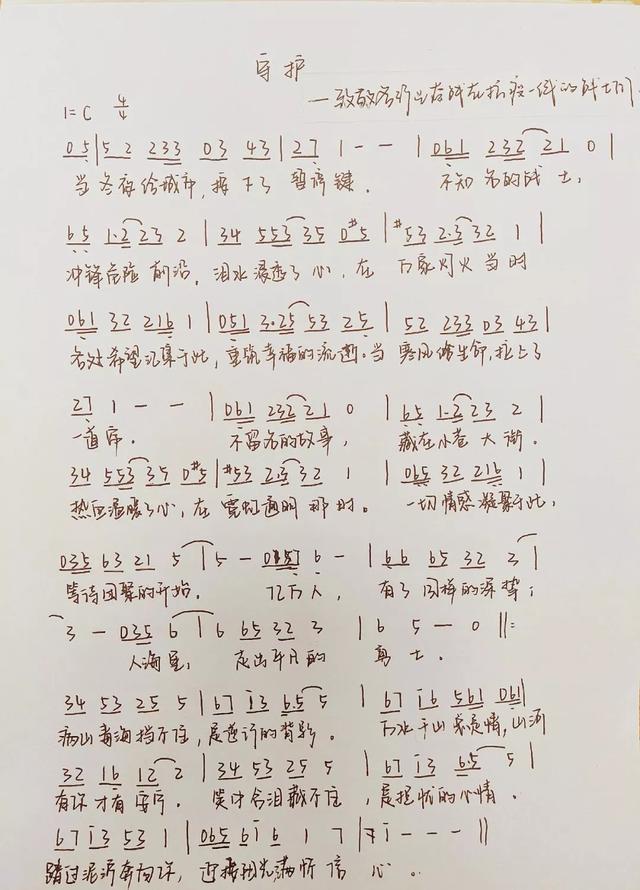 守护
—致敬各行业奋战在抗疫一线的战士们
1=C 4/4
0 5 | 5 2 2 3 3 0 3 4 3 | 2 7 1 - - | 0 6 1 2 3 2 2 1 0 |
当冬夜给城市,按下了 暂停键. 不知名的战士,
6 5 1·2 2 3 2 | 3 4 5 5 3 3 5 0 #5 | #5 3 2·3 3 2 1 |
冲锋危险前沿. 泪水浸透了心,在 万家灯火当时
0 6 1 3 2 2 1 6 1 | 0 5 1 3·2 5 5 3 2 5 | 5 2 2 3 3 0 3 4 3 |
各处希望汇集于此,重筑幸福的流逝.当 寒风给生命,拉上了
2 7 1 - - | 0 6 1 2 3 2 2 1 0 | 6 5 1·2 2 3 2 |
一道帘. 不留名的故事, 藏在小巷大街.
3 4 5 5 3 3 5 0 #5 | #5 3 2·3 3 2 1 | 0 6 5 3 2 2 1 6 1 |
热血温暖了心,在 霓虹通明那时. 一切情感凝聚于此,
0 3 5 6 3 2 1 5 | 5 - 0 6 5 7 6 - | 6 6 6 5 3 2 3 |
等待团聚的开始. 亿万人, 有了同样的深挚;
3 - 0 3 5 6 | 6 6 5 3 2 3 | 6 5 - 0 ‖:
人海里, 走出平凡的 勇士.
3 4 5 3 2 5 5 | 6 7 i 3 6·5 5 | 6 7 i 6 5 6 1 0 6 1 |
病山毒海挡不住,是逆行的背影. 万水千山总是情,山河
3 2 1 6 1 2 2 | 3 4 5 3 2 5 5 | 6 7 i 3 6·5 5 |
有你才有安宁. 笑中含泪藏不住,是担忧的心情.
6 7 i 3 5 3 1 | 0 6 5 6 i 6 1 7 | 7 i - - - ‖
踏过泥泞奔向你, 迎接阳光满怀信心.